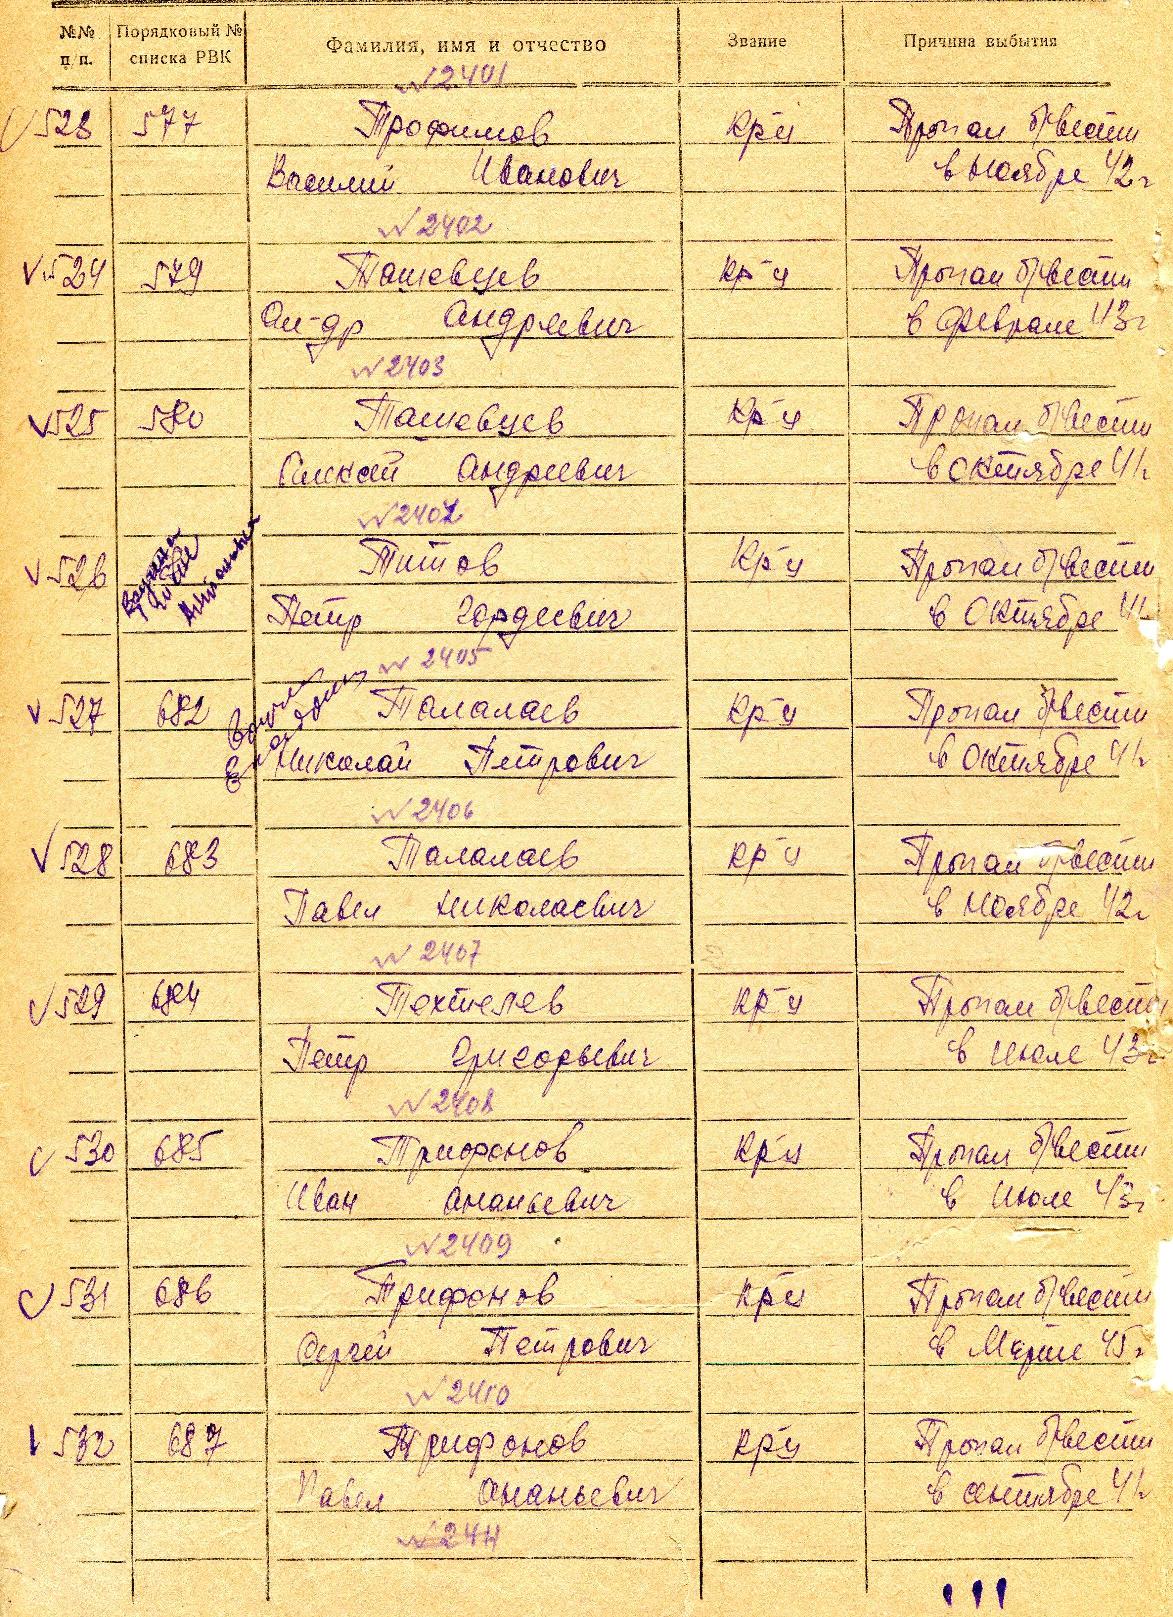 №№ п/п. Порядковый № списка РВК Фамилия, имя и отчество Звание Причина выбытия
№ 2401
523 577 Трофимов кр-ц Пропал б/вести
Василий Иванович в ноябре 42г
№ 2402
524 579 Ташевцев кр-ц Пропал б/вести
Ал-др Андреевич в феврале 43г
№ 2403
525 580 Ташевцев кр-ц Пропал б/вести
Алексей Андреевич в октябре 41г
№ 2404
526 Титов кр-ц Пропал б/вести
Петр Гордеевич в октябре 41г
№ 2405
527 682 Талалаев кр-ц Пропал б/вести
Николай Петрович в октябре 41г
№ 2406
528 683 Талалаев кр-ц Пропал б/вести
Павел Николаевич в ноябре 42г
№ 2407
529 684 Техтелев кр-ц Пропал б/вести
Петр Григорьевич в июле 43г
№ 2408
530 685 Трифонов кр-ц Пропал б/вести
Иван Ананьевич в июле 43г
№ 2409
531 686 Трифонов кр-ц Пропал б/вести
Сергей Петрович в марте 45г
№ 2410
532 687 Трифонов кр-ц Пропал б/вести
Павел Ананьевич в сентябре 41г
№ 2411